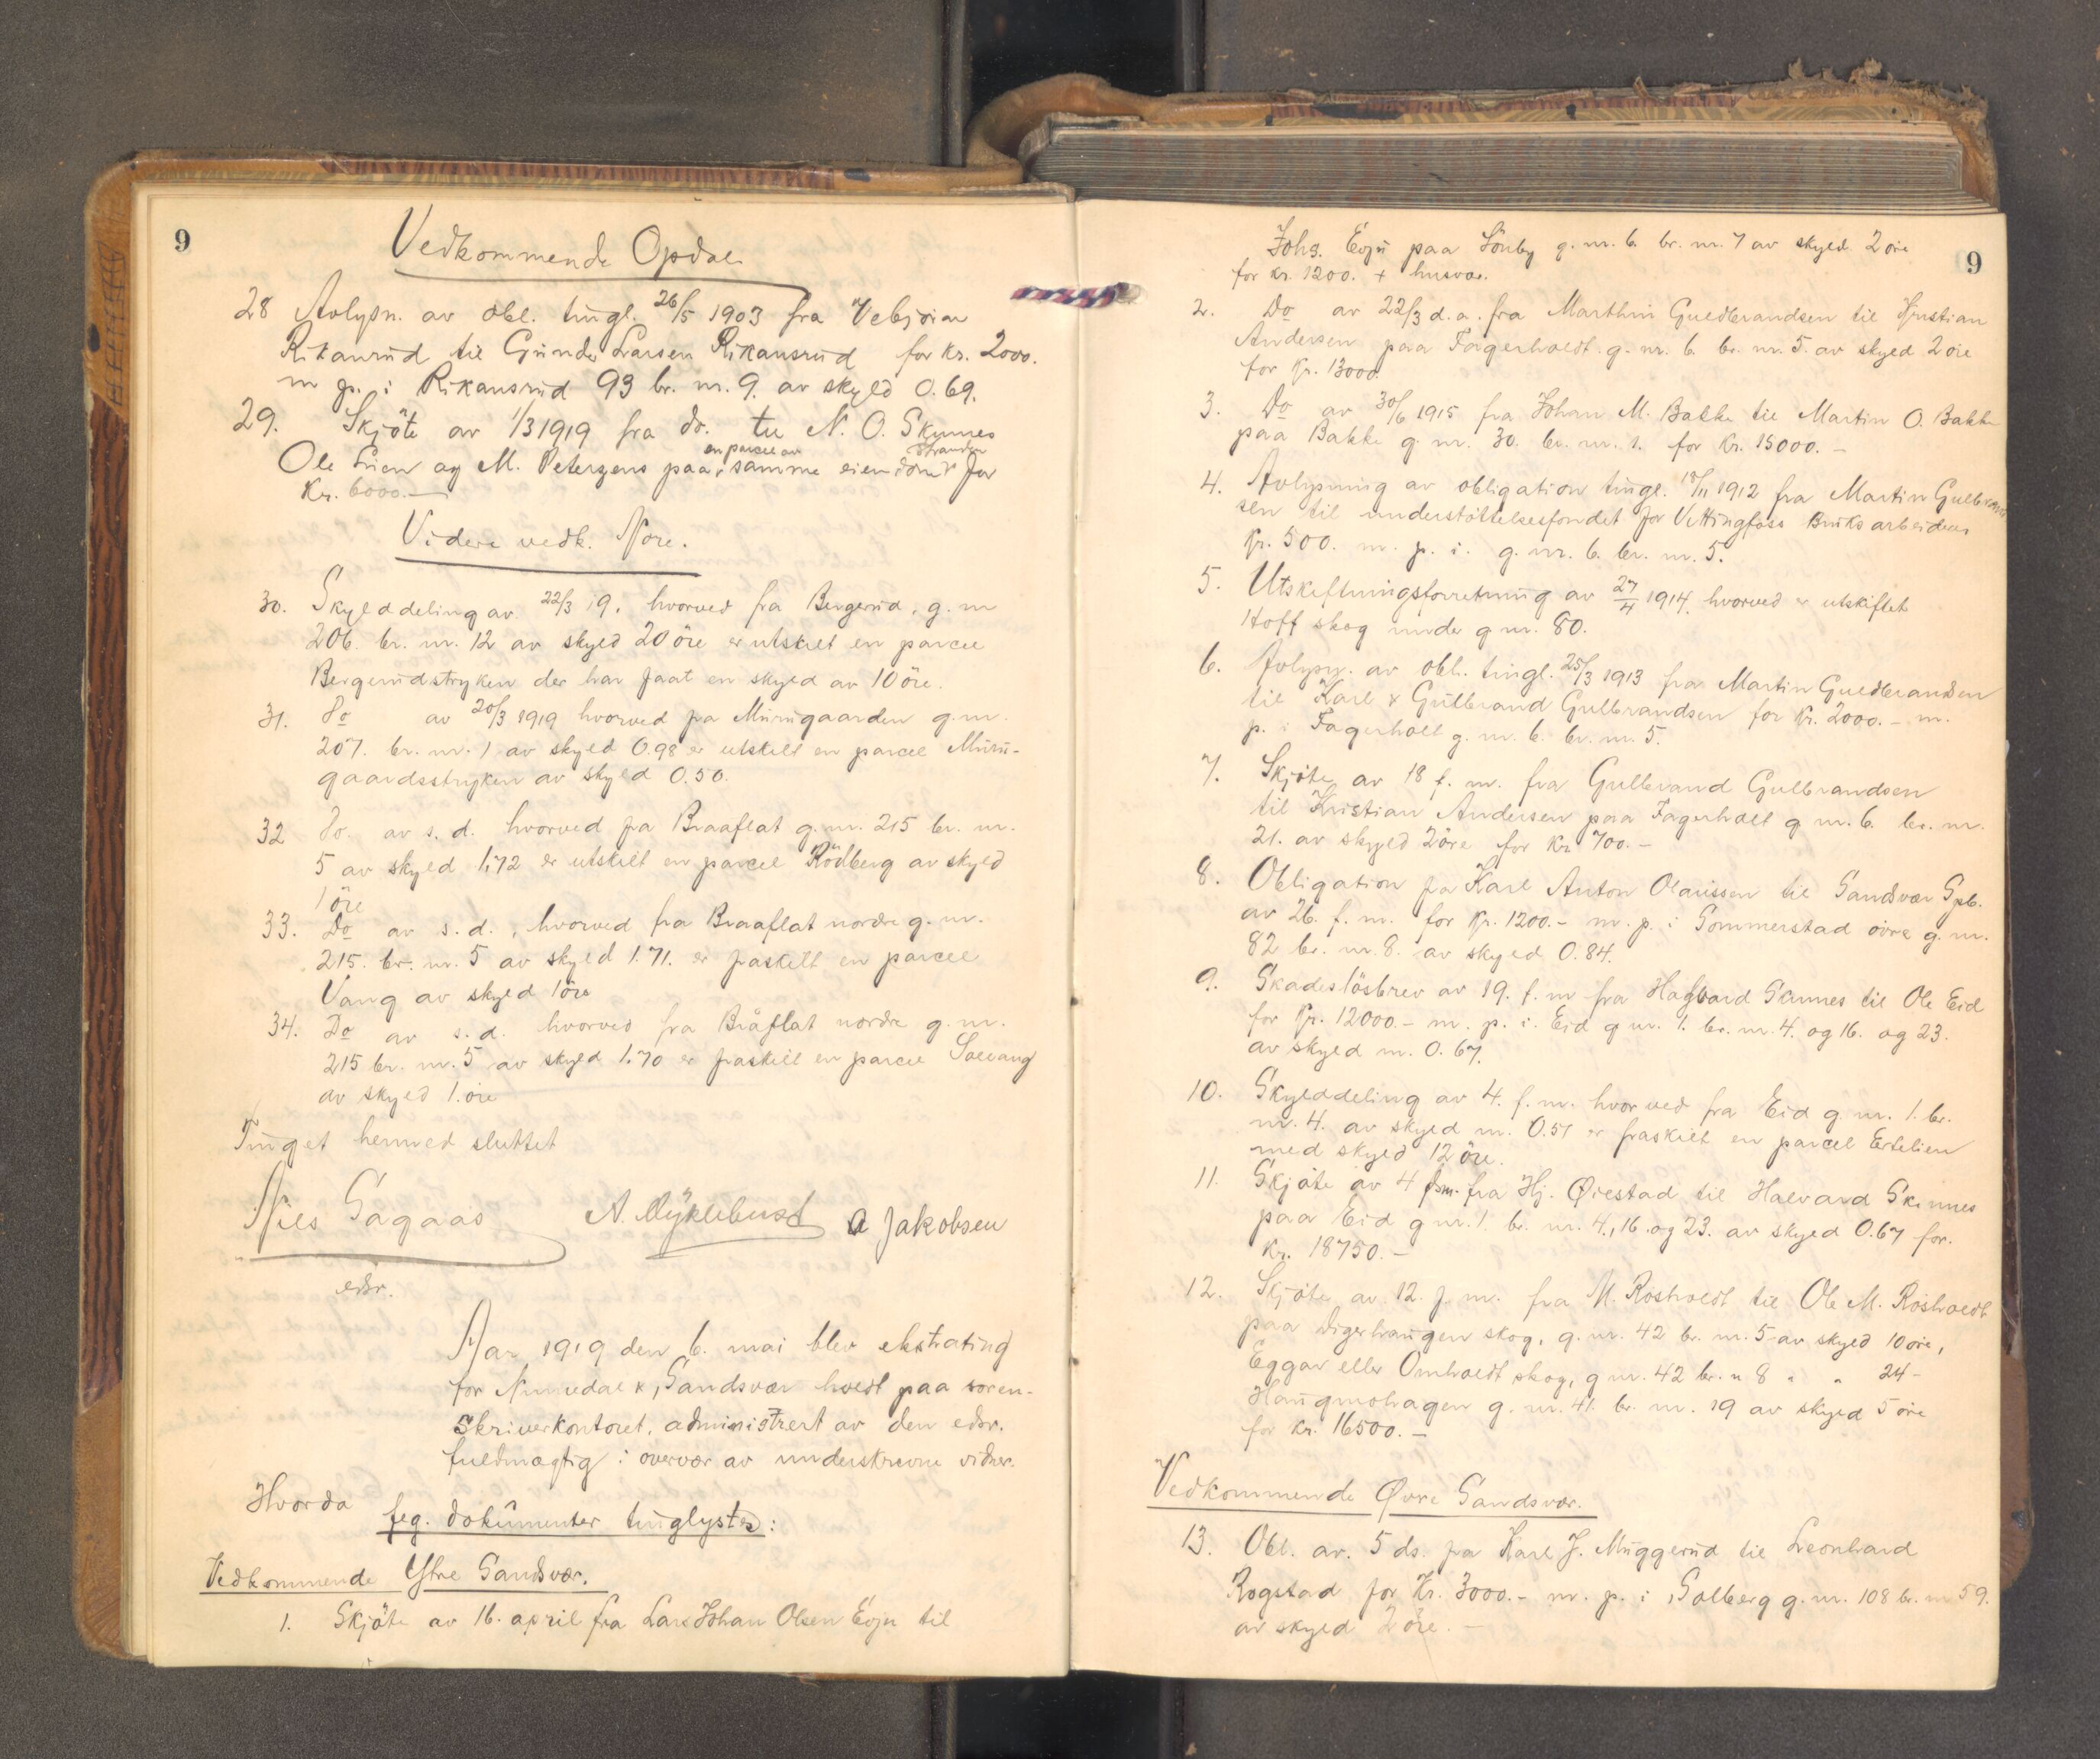 9
Vedkommende Opdal
28 Avlysn. av obl. tingl. 26/5 1903 fra Vebjörn
Rikansrud til Gunder Larsen Rikansrud for kr. 2000.
m p. i Rikansrud 93 br. nr. 9. av skyld 0.69.
29. Skjöte av 1/3 1919 fra do. til N. O. Skynnes
en parcel av Stranden
Ole Lien og M. Petersens paa samme eiendom for
Kr. 6000.—
Videre vedk. Nore.
30. Skylddeling av 22/3 19. hvorved fra Bergerud, g. nr
206. br. nr. 12 av skyld 20 öre er utskilt en parcel
Bergerudstryken der har faat en skyld av 10 öre.
31. Do av 20/3 1919 hvorved fra Murugaarden g. nr.
207. br. nr. 1 av skyld 0.98 er utskilt en parcel Muru-
gaardsstryken av skyld 0.50.
32 Do. av s. d. hvorved fra Braaflat g. nr. 215 br. nr.
5 av skyld 1.72 er utskilt en parcel Rödberg av skyld
1 öre
33. Do av s. d., hvorved fra Braaflat nordre g. nr.
215. br. nr. 5 av skyld 1.71. er fraskilt en parcel
Vang av skyld 1 öre
34. Do av s. d. hvorved fra Bråflat nordre g. nr.
215 br. nr. 5 av skyld 1.70 er fraskilt en parcel Solvang
av skyld 1. öre
Tinget hermed sluttet
Nils Sagaas A. Myklebust A Jakobsen
edsv.
Aar 1919 den 6. mai blev ekstrating
for Numedal & Sandsvær holdt paa soren-
skriverkontoret, administrert av den edsv.
fuldmægtig i overvær av underskrevne vidner.
Hvorda
flg. dokumenter tinglystes:
Vedkommende Ytre Sandsvær.
1. Skjöte av 16. april fra Lars Johan Olsen Evju til
9
Johs. Evju paa Lönby g. nr. 6. br. nr. 7 av skyld 2 öre
for kr. 1200. + husvær.
2. Do av 22/3 d. a. fra Marthin Guldbrandsen til Kristian
Andersen paa Fagerholdt g. nr. 6. br. nr. 5. av skyld 2 öre
for Kr. 13000.
3. Do av 30/6 1915 fra Johan M. Bakke til Martin O. Bakke
paa Bakke g. nr. 30. br. nr. 1. for Kr. 15000.—
4. Avlysning av obligation tingl. 18/11 1912 fra Martin Gulbrand
sen til understöttelsesfondet for Vittingfoss Bruks arbeidere
Kr. 500. m. p. i. g. nr. 6. br. nr. 5.
5. Utskiftningsforretning av 27/4 1914. hvorved er utskiftet
Hoff skog under g nr. 80.
6. Avlysn. av obl. tingl. 25/3 1913 fra Martin Guldbrandsen
til Karl & Gulbrand Gulbrandsen for Kr. 2000.— m.
p. i Fagerholt g. nr. 6. br. nr. 5.
7. Skjöte av 18 f. m. fra Gulbrand Gulbrandsen
til Kristian Andersen paa Fagerholt g nr. 6. br. nr.
21. av skyld 2 öre for Kr 700.—
8. Obligation fra Karl Anton Olaussen til Sandsvær Spb.
av 26. f. m. for Kr. 1200.— m. p. i Sommerstad övre g. nr.
82 br. nr. 8. av skyld 0.84.
9. Skadeslösbrev av 19. f. m fra Halvard Skinnes til Ole Eid
for Kr. 12000.— m. p. i. Eid g nr. 1. br. nr. 4. og 16. og 23.
av skyld m. 0.67.
10. Skylddeling av 4. f. m. hvorved fra Eid g. nr. 1. br.
nr. 4. av skyld m. 0.57 er fraskilt en parcel Ertelien
med skyld 12 öre.
11. Skjöte av 4 f. m. fra Hj. Øiestad til Halvard Skinnes
paa Eid g nr. 1. br. nr. 4., 16. og 23. av skyld 0.67 for.
Kr. 18750.—
12. Skjöte av 12. f. m. fra M. Rösholdt til Ole M. Rösholdt
paa Digerhaugen skog, g. nr. 42 br. nr. 5 av skyld 10 öre,
Eggar eller Omholdt skog, g nr. 42 br. " 8 " " 24 -
Haugmohagen g. nr. 41. br. nr. 19 av skyld 5 öre
for Kr. 16500.—
Vedkommende Øvre Sandsvær.
13. Obl. av. 5 ds. fra Karl J. Muggerud til Leonhard
Rogstad for Kr. 3000.— m. p. i Solberg g. nr. 108 br. nr 59.
av skyld 2 öre.—